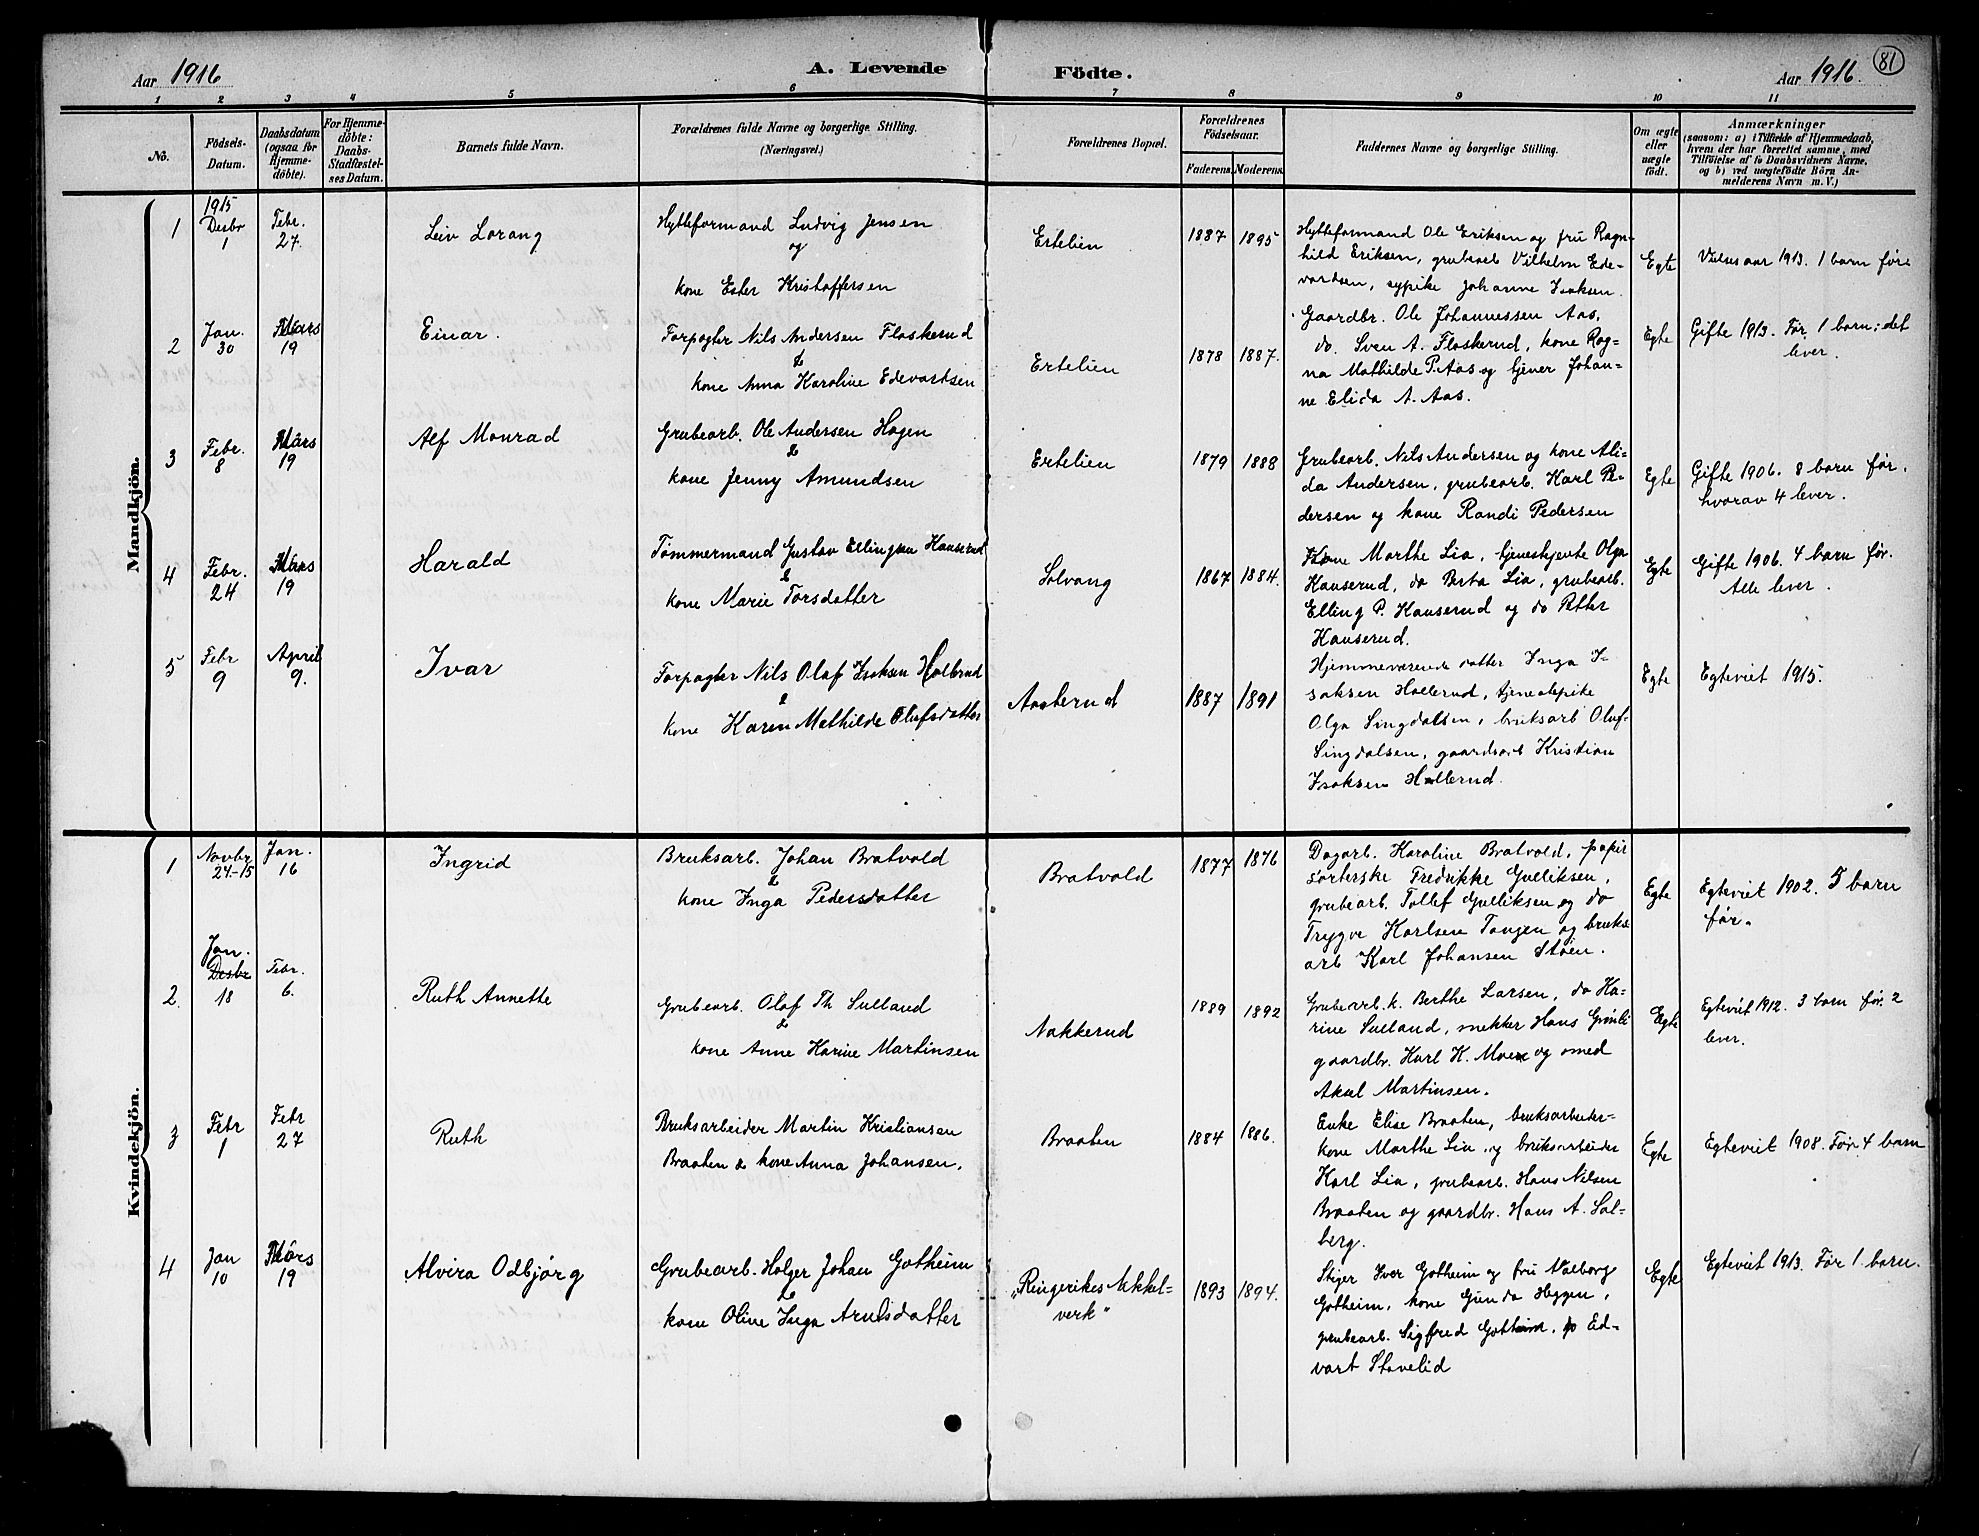 Aar 1916
A. Levende
Födte.
Aar 1916.
81
1 2 3 4 5 6 7 8 9 10 11
No.
Födsels-
Datum.
Daabsdatum
(ogsaa for
Hjemme-
döbte).
For Hjemme-
döbte:
Daabs-
Stadfæstel-
ses Datum.
Barnets fulde Navn.
Forældrenes fulde Navne og borgerlige Stilling.
(Næringsvei.)
Forældrenes Bopæl.
Forældrenes
Födselsaar.
Faderens. Moderens.
Faddernes Navne og borgerlige Stilling.
Om ægte
eller
uægte
födt.
Anmærkninger
(saasom: a) i Tilfælde af Hjemmedaab,
hvem der har forrettet samme, med
Tilföielse af to Daabsvidners Navne,
og b) ved uægtefödte Börn An-
melderens Navn m. V.)
Mandkjön.
1
1915
Desbr
1
Febr.
27.
Leiv Lorang
Hytteformand Ludvig Jensen
og
kone Ester Kristoffersen
Ertelien
1887
1895
Hytteformand Ole Eriksen og fru Ragn-
hild Eriksen, grubearb Vilhelm Ede-
vardsen, sypike Johanne Isaksen.
Egte
Vielsesaar 1913. 1 barn før
2
Jan.
30
Mars
19
Einar.
Forpagter Nils Andersen Flaskerud
&
kone Anna Karoline Edevardsen
Ertelien
1878
1887.
Gaardbr. Ole Johannessen Aas,
do. Sven A. Flaskerud, kone Rag-
na Mathilde P. Aas og tjener Johan-
ne Elida A. Aas.
Egte
Gifte 1913. Før 1 barn; det
lever.
3
Febr.
8
Mars
19
Alf Monrad
Grubearb. Ole Andersen Hagen
&
kone Jenny Amundsen
Ertelien
1879
1888
Grubearb. Nils Andersen og kone Ali-
da Andersen, grubearb. Karl Pe-
dersen og kone Randi Pedersen
Egte
Gifte 1906. 8 barn før.
hvorav 4 lever.
4
Febr.
24
Mars
19
Harald
Tømmermand Gustav Ellingsen Hauserud
&
kone Marie Torsdatter
Solvang
1867
1884.
Kone Marthe Lia, tjenestejente Olga
Hauserud, do Berta Lia, grubearb.
Elling P. Hauserud og do Petter
Hauserud.
Egte
Gifte 1906. 4 barn før.
Alle lever.
5
Febr
9
April
9.
Ivar
Forpagter Nils Olaf Isaksen Hollerud
&
kone Karen Mathilde Olufsdatter
Aasterud
1887
1891
Hjemmeværende datter Inga I-
saksen Hollerud, tjenestepike
Olga Singdalsen, bruksarb Oluf
Singdalsen, gaardsarb Kristian
Isaksen Hollerud.
Egte
Egteviet 1915.
Kvindekjön.
1
Novbr
24.-15
Jan.
16
Ingrid
Bruksarb. Johan Bratvold
&
kone Inga Pedersdatter
Bratvold
1877
1876
Dagarb. Karoline Bratvold, papir
sorterske Fredrikke Gulliksen,
grubearb. Tollef Gulliksen og do
Trygve Karlsen Tangen og bruks
arb Karl Johansen Støen.
Egte
Egteviet 1902. 5 barn
før.
2.
Jan.
Desbr
18
Febr.
6.
Ruth Annette
Grubearb. Olaf Th Sulland
&
kone Anne Karine Martinsen
Nakkerud
1889
1892
Grubearb.k. Berthe Larsen, do Ka-
rine Sulland, snekker Hans Grønli
gaardbr. Karl K. Moe og smed
Aksel Martinsen.
Egte
Egteviet 1912. 3 barn før. 2
lever.
3
Febr
1
Febr
27
Ruth
Bruksarbeider Martin Kristiansen
Braaten & kone Anna Johansen.
Braaten
1884
1886.
Enke Elise Braaten, bruksarbeider-
kone Marthe Lia og bruksarbeider
Karl Lia, grubearb. Hans Nilsen
Braaten og gaardbr. Hans A. Sol-
berg.
Egte
Egteviet 1908. Før 4 barn
4
Jan
10
Mars
19
Alvira Odbjørg
Grubearb. Holger Johan Gotheim
&
kone Olive Inga Arntsdatter
"Ringerikes Nikkel-
verk"
1893
1894.
Stiger Iver Gotheim og fru Valborg
Gotheim, kone Gunda Heggen,
grubearb. Sigfred Gotheim, do Ed-
vart Stavelid
Egte
Egteviet 1913. Før 1 barn.